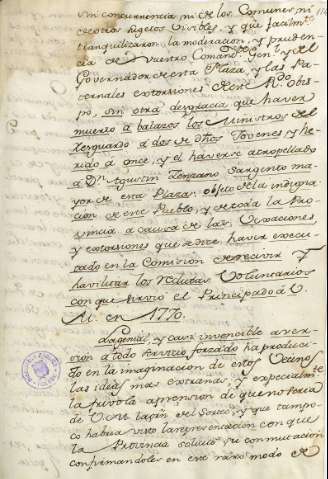 sin concurrencia ni de los Comunes ni
de otros sugetos visibles, y que facilmte
tranquilizaron la moderacion, y pruden-
cia de Vuestro Comandte Genl y del
Governador de esta Plaza, y las Pa-
ternales extorsiones de este Rdo Obis-
po, sin otra desgracia que haver
muerto a balazos los Ministros del
Resguardo à dos de dhos Jovenes y he-
rido à once, y el haverse atropellado
à Dn Agustin Lenzano Sargento ma-
yor de esta Plaza objeto de la indigna-
cion de este Pueblo, y de toda la Pro-
vincia a causa de las vexaciones
y extorsiones que se dice haver execu-
tado en la Comision de recivir y
havilitar los Reclutas Voluntarios
con que sirvio el Principado à V.
M. en 1770.
La gente, y casi invencible aver-
sion à todo servicio forzado ha produci-
do en la imaginacion de estos Vecinos
las ideas mas extrañas, y especialmte
la frivola aprension de que no seria
de V. M. la del Sorteo, y que tampo-
co havia visto la representacion con que
la Provincia solicitó su conmutacion
confirmandoles en este raro modo de